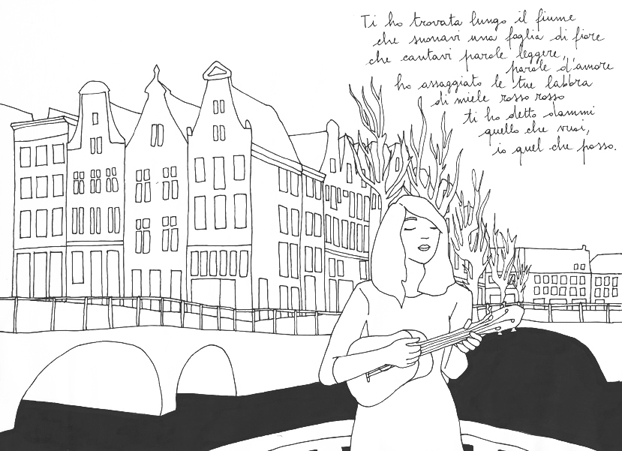 Ti ho trovata lungo il fiume
che suonavi una foglia di fiore
che cantavi parole leggere,
parole d'amore
ho assaggiato le tue labbra
di miele rosso rosso
ti ho detto dammi
quello che vuoi,
io quel che posso.